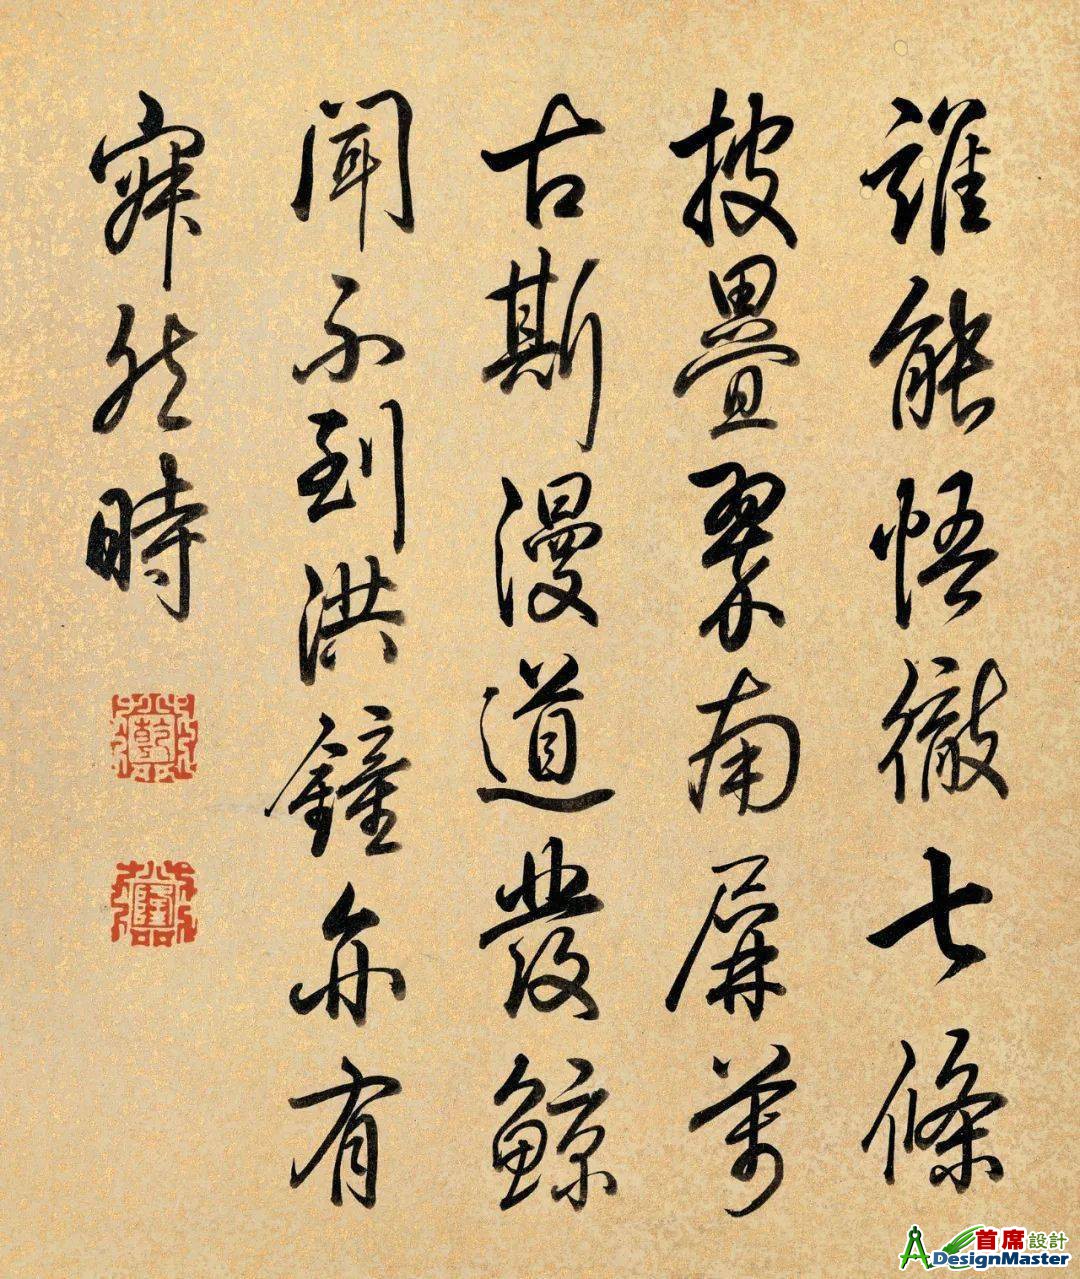 誰能悟徹七條
披疊翠南屏萬
古斯漫道發鯨
聞不到洪鐘亦有
寂然時
乾
隆
首席設計
DesignMaster